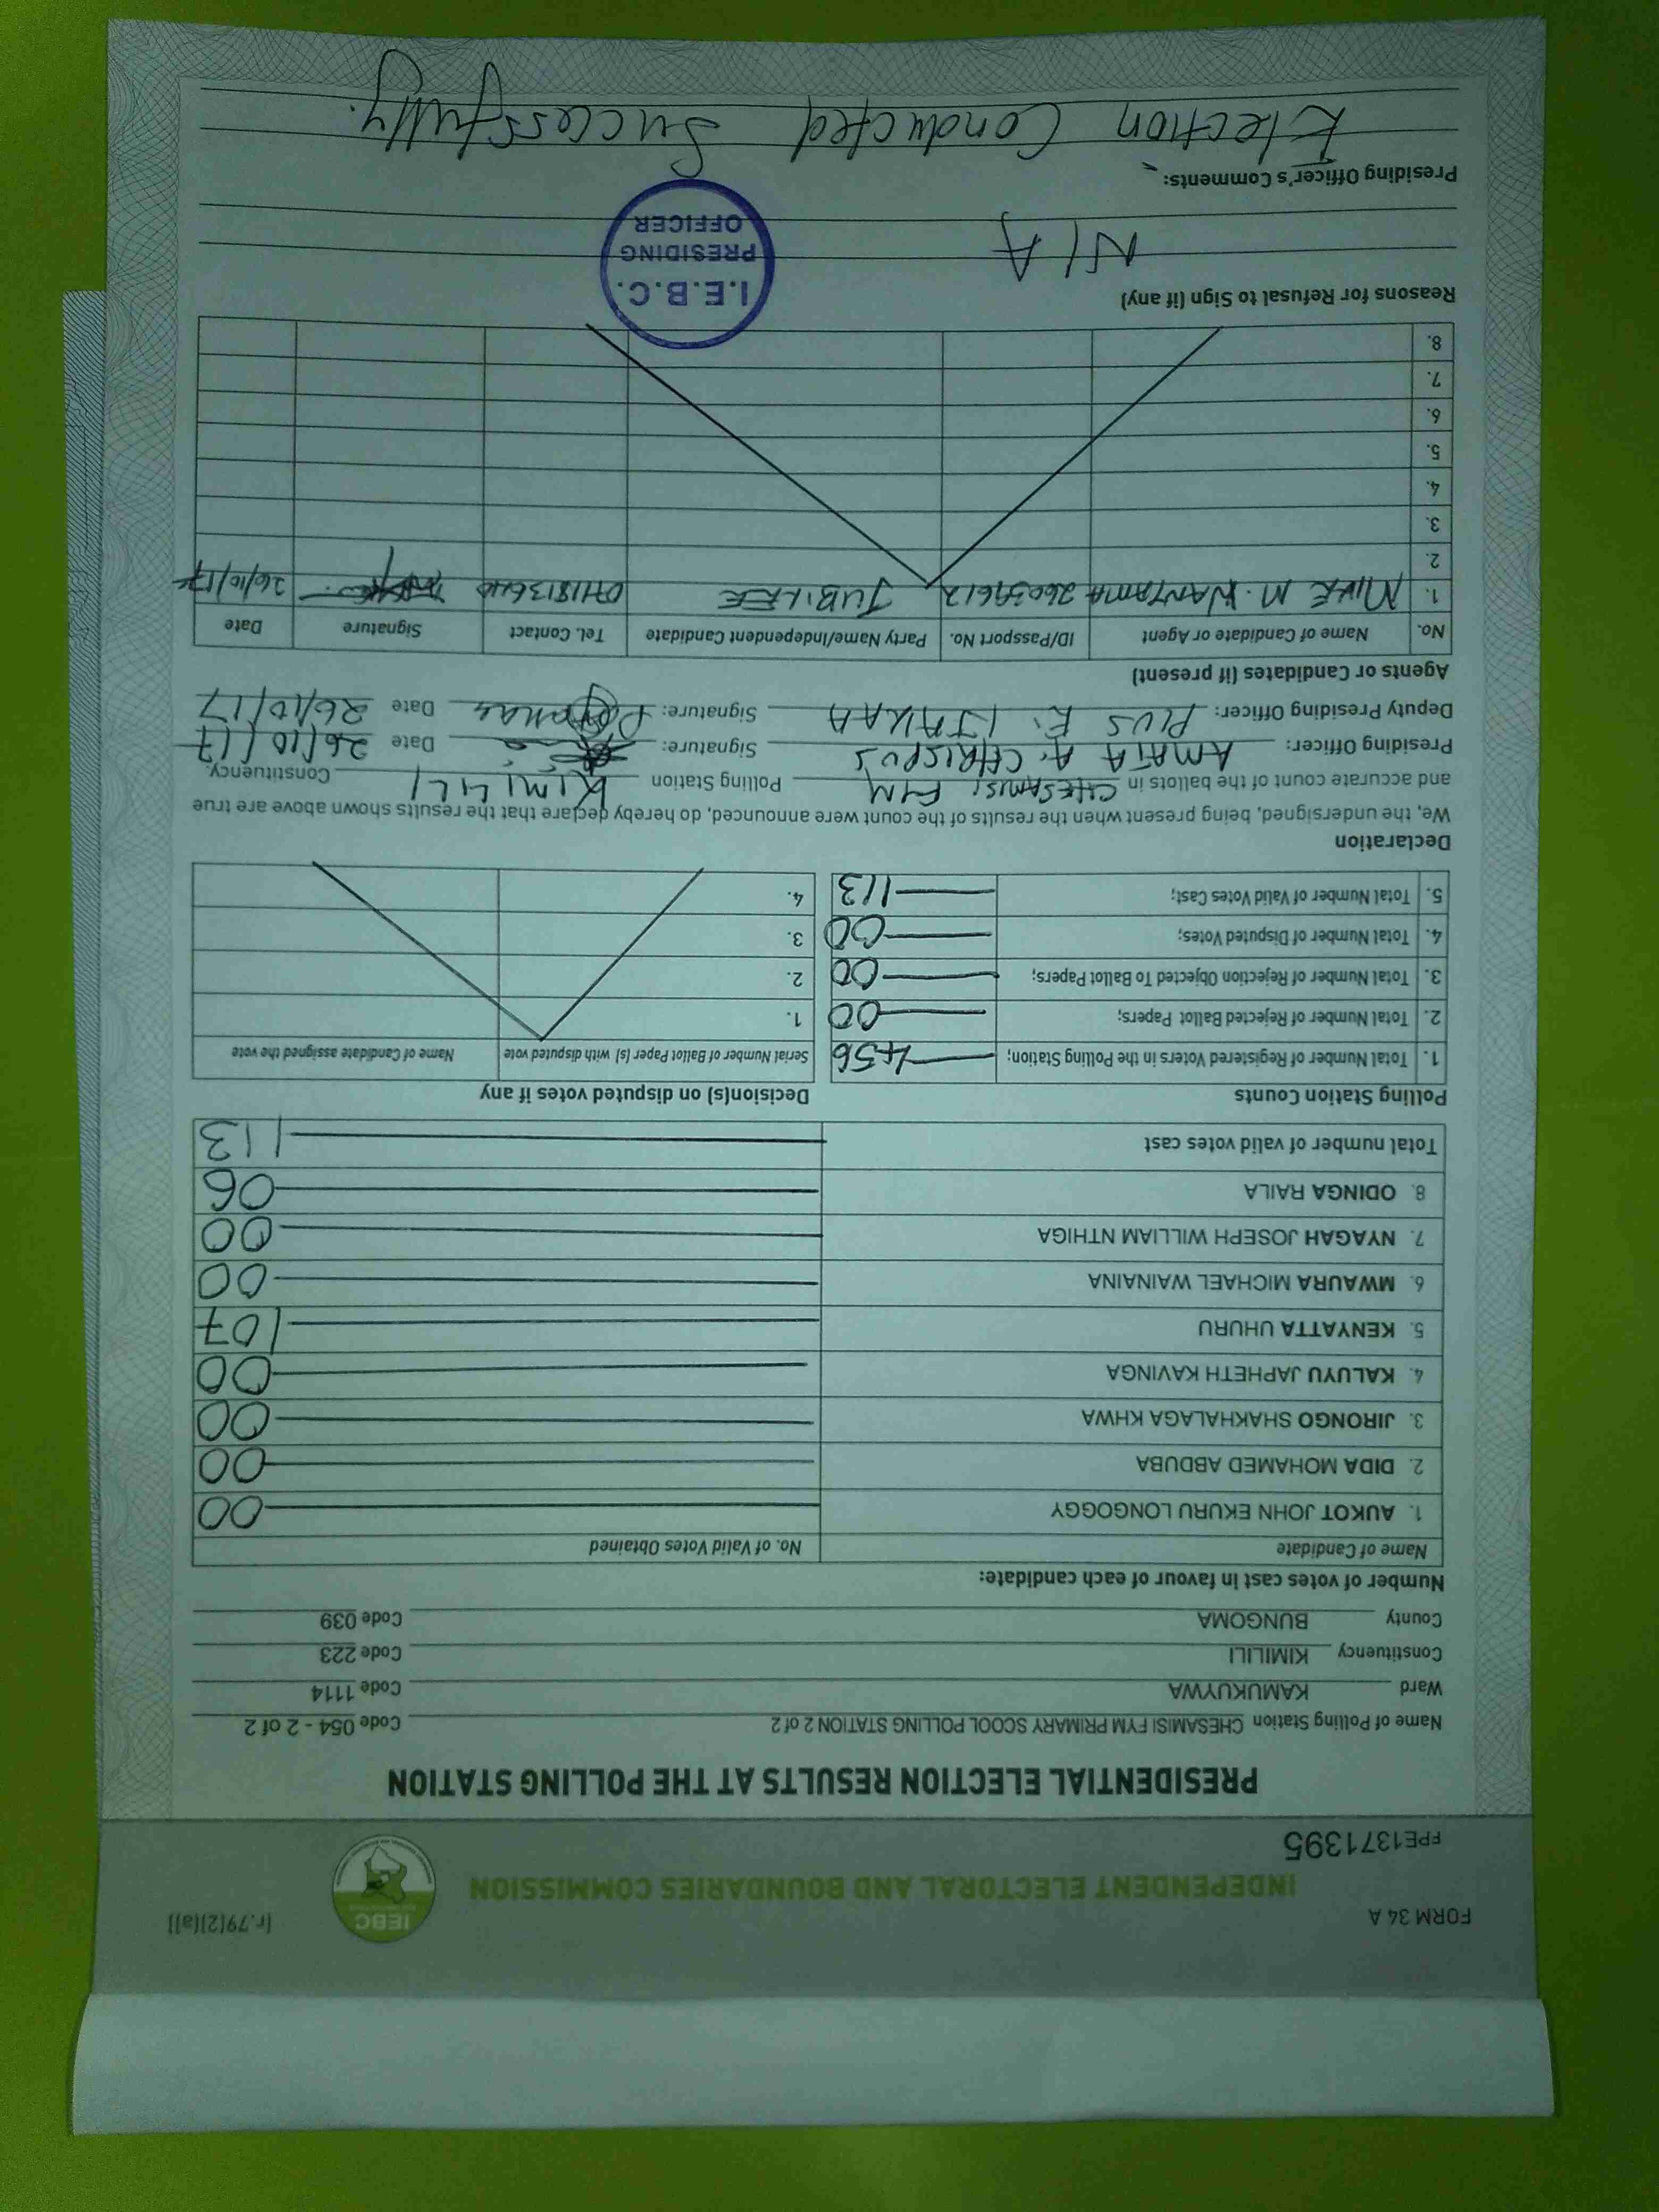 FORM 34 A
(r.79(2)(a))
INDEPENDENT ELECTORAL AND BOUNDARIES COMMISSION
IEBC
FPE1371395
PRESIDENTIAL ELECTION RESULTS AT THE POLLING STATION
Name of Polling Station CHESAMISI FYM PRIMARY SCOOL POLLING STATION 2 of 2 Code 054 - 2 of 2
Ward KAMUKUYWA Code 1114
Constituency KIMILILI Code 223
County BUNGOMA Code 039
Number of votes cast in favour of each candidate:
Name of Candidate No. of Valid Votes Obtained
1. AUKOT JOHN EKURU LONGOGGY 00
2. DIDA MOHAMED ABDUBA 00
3. JIRONGO SHAKHALAGA KHWA 00
4. KALUYU JAPHETH KAVINGA 00
5. KENYATTA UHURU 107
6. MWAURA MICHAEL WAINAINA 00
7. NYAGAH JOSEPH WILLIAM NTHIGA 00
8. ODINGA RAILA 06
Total number of valid votes cast 113
Polling Station Counts
1. Total Number of Registered Voters in the Polling Station; 456
2. Total Number of Rejected Ballot Papers; 00
3. Total Number of Rejection Objected To Ballot Papers; 00
4. Total Number of Disputed Votes; 00
5. Total Number of Valid Votes Cast; 113
Decision(s) on disputed votes if any
Serial Number of Ballot Paper (s) with disputed vote Name of Candidate assigned the vote
1.
2.
3.
4.
Declaration
We, the undersigned, being present when the results of the count were announced, do hereby declare that the results shown above are true
and accurate count of the ballots in CHESAMISI FYM Polling Station KIMILILI Constituency.
Presiding Officer: AMAIA A. CHRISPUS Signature: Date 26/10/17
Deputy Presiding Officer: PIUS E. Signature: Date 26/10/17
Agents or Candidates (if present)
No. Name of Candidate or Agent ID/Passport No. Party Name/Independent Candidate Tel. Contact Signature Date
1. MIKE M. WANYAMA 26039612 JUBILEE 26/10/17
2.
3.
4.
5.
6.
7.
8.
Reasons for Refusal to Sign (if any)
N/A
I.E.B.C.
PRESIDING
OFFICER
Presiding Officer's Comments:
Election Conducted Successfully.